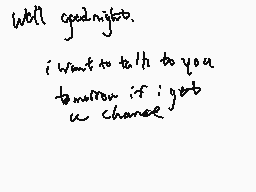 Well goodnight.
i want to talk to you
tomorrow if i get
a chance